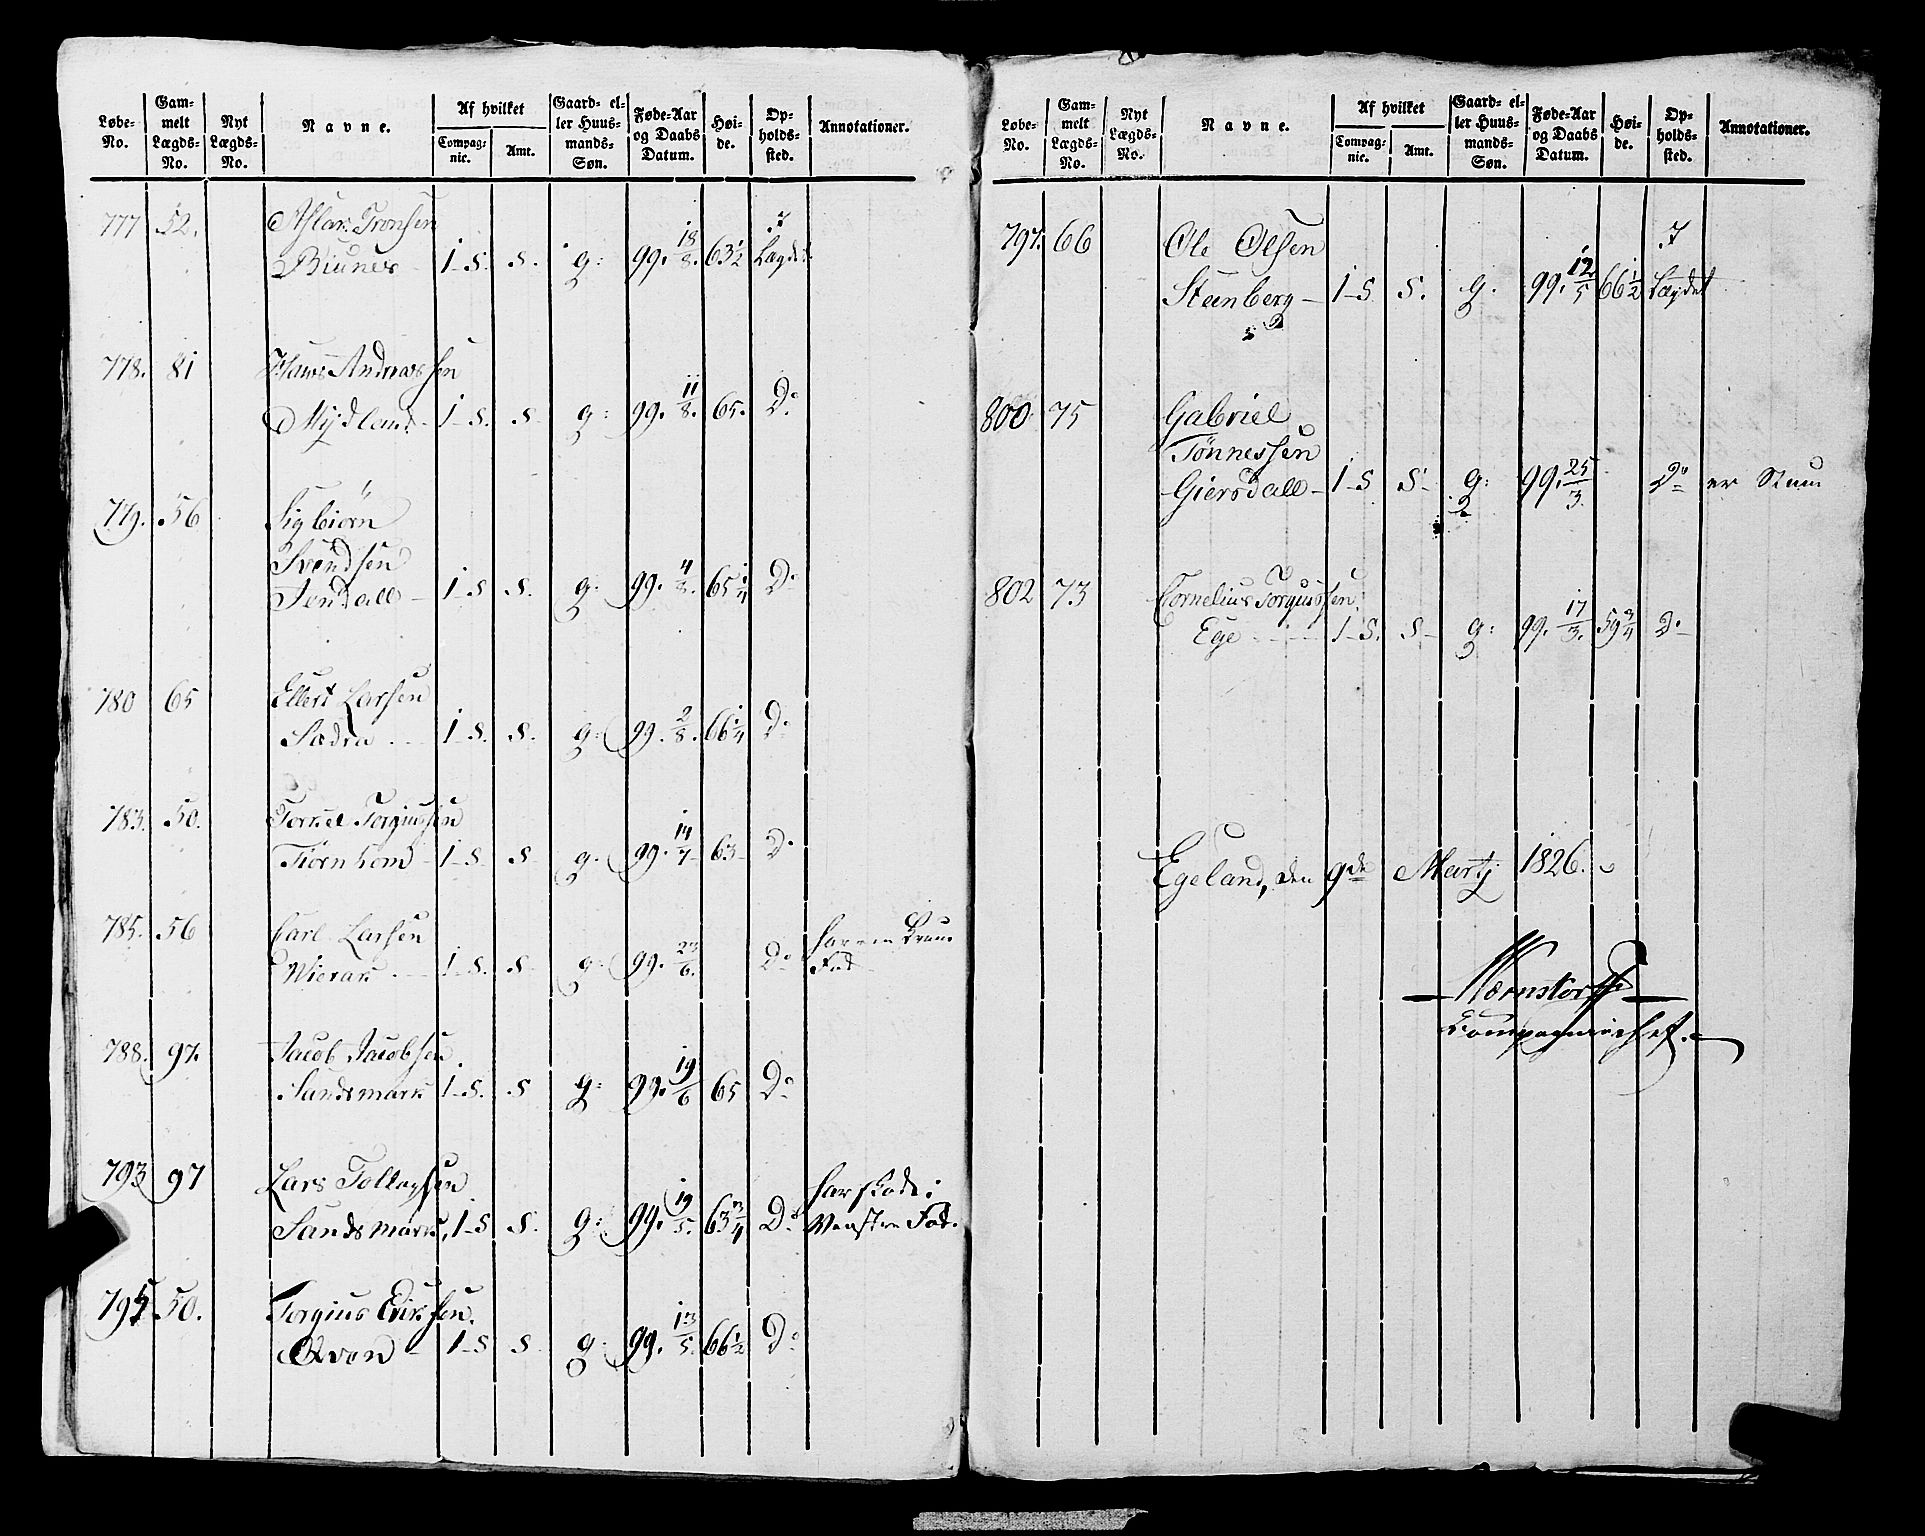 Løbe-No. Gammelt Lægds-No. Nyt Lægds-No. Navne. Af hvilket Compagnie. Amt. Gaard- eller Huusmands-Søn. Føde-Aar og Daabs Datum. Høide. Opholdssted. Annotationer.
777 52. Aslak Tronsen I
Biunes 1-S. S. g: 99. 18/8. 63 1/2 Lægdet
778. 81 Hans Andreassen
Mydland 1-S. S g: 99. 11/8. 65. Do
779. 56 Sigbiørn
Svendsen
Jendall 1-S S. g: 99. 4/8. 65 1/4 Do
780 65 Ellert Larsen
Sædra 1-S. S. g: 99. 2/8. 66 1/4 Do
783. 50. Torkel Torgiussen
Tiørnhom 1-S S g. 99. 14/7 63 Do
785. 56 Carl Larsen har en Krum
Wierak 1-S. S g. 99. 23/6. Do Fod
788. 97. Jacob Jacobsen
Sandsmark 1-S. S g: 99. 19/6 65 Do
793 97 Lars Tollagsen har skade i
Sandsmark, 1-S S. g: 99. 19/5. 63 3/4 Do Venstre Fod.
795 50. Torgius Eriksen.
Qven 1-S S g. 99. 13/5. 66 1/2 Do
Løbe-No. Gammelt Lægds-No. Nyt Lægds-No. Navne. Af hvilket Compagnie. Amt. Gaard- eller Huusmands-Søn. Føde-Aar og Daabs Datum. Høide. Opholdssted. Annotationer.
797. 66 Ole Olsen I
Steenberg 1-S S. g. 99. 12/5 66 1/2 Lægdet
800 75 Gabriel
Tønnessen
Giersdall 1-S S g: 99. 25/3. Do er Stum
802 73 Cornelius Torgiussen
Ege 1-S. S g: 99. 17/3. 59 3/4 Do
Egeland, den 9de Martj 1826.
Wernstorff
Compagniechef.